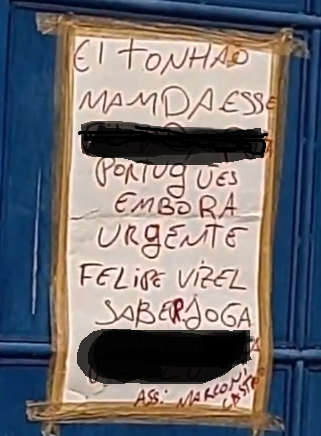 EI TONHAO
MAMDA ESSE
PORTUGUES
EMBORA
URGENTE
FELIPE VIZEL
SABER JOGA
ASS: MARCONI
CASTRO